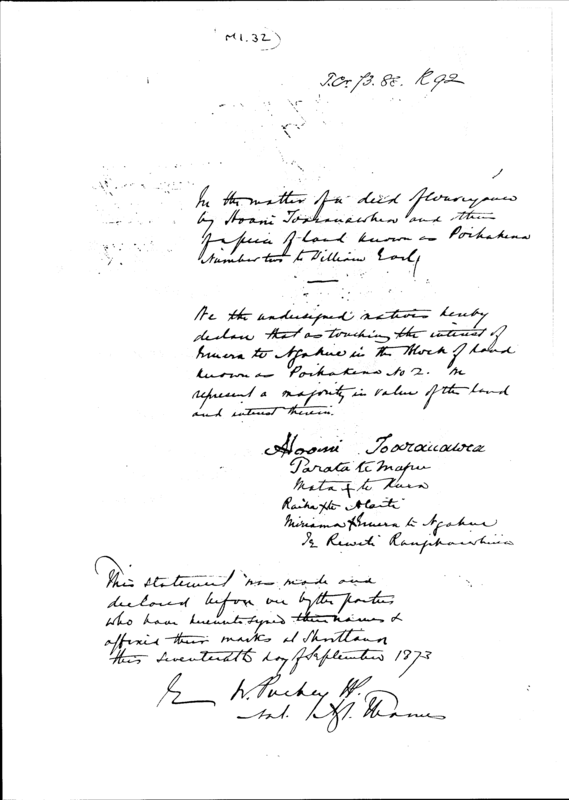 M1.32
T.Cr. 73. 88. R92
In the matter of a deed of Conveyance
by Hooni Tooranawhea and others
of a piece of land known as Poihakena
Number two to William Earl
We the undersigned natives hereby
declare that as touching the interest of
Emera te Ngahue in the Block of land
known as Poihakena No 2. we
represent a majority in value of the land
and interest therein.
Hooni Tooranawea
Parata te Mapu
Mata x te Kura
Raiha x te
Miriama x Emera te Ngahue
Te Rewiti Rangikawhiua
This statement was made and
declared before me by the parties
who have hereunto signed their names &
affixed their marks at Shortland
this seventeenth day of September 1873
E W. Puckey
Nat. Agt. Thames